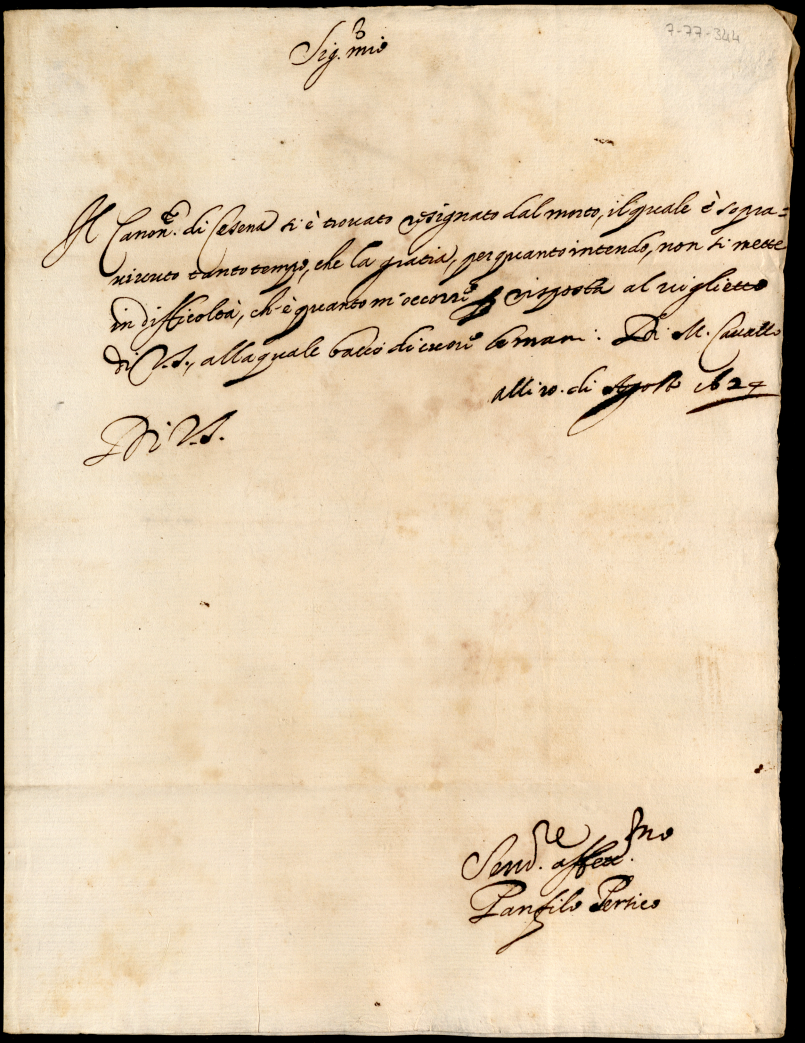 7-77-344
Sig.re mio
Il Canon.to di Cesena si è trovato resignato dal morto, il quale è sopra=
vivuto tanto tempo, che la gratia, per quanto intendo, non si mette
in difficoltà, ch'è quanto m'occorre risposta al viglietto
di V.S., alla quale bacio di cuore le mani. Di M. Cavallo
alli 10. di Agosto 1624
Di V.S.
Serv.re affett.mo
Panfilo Persico